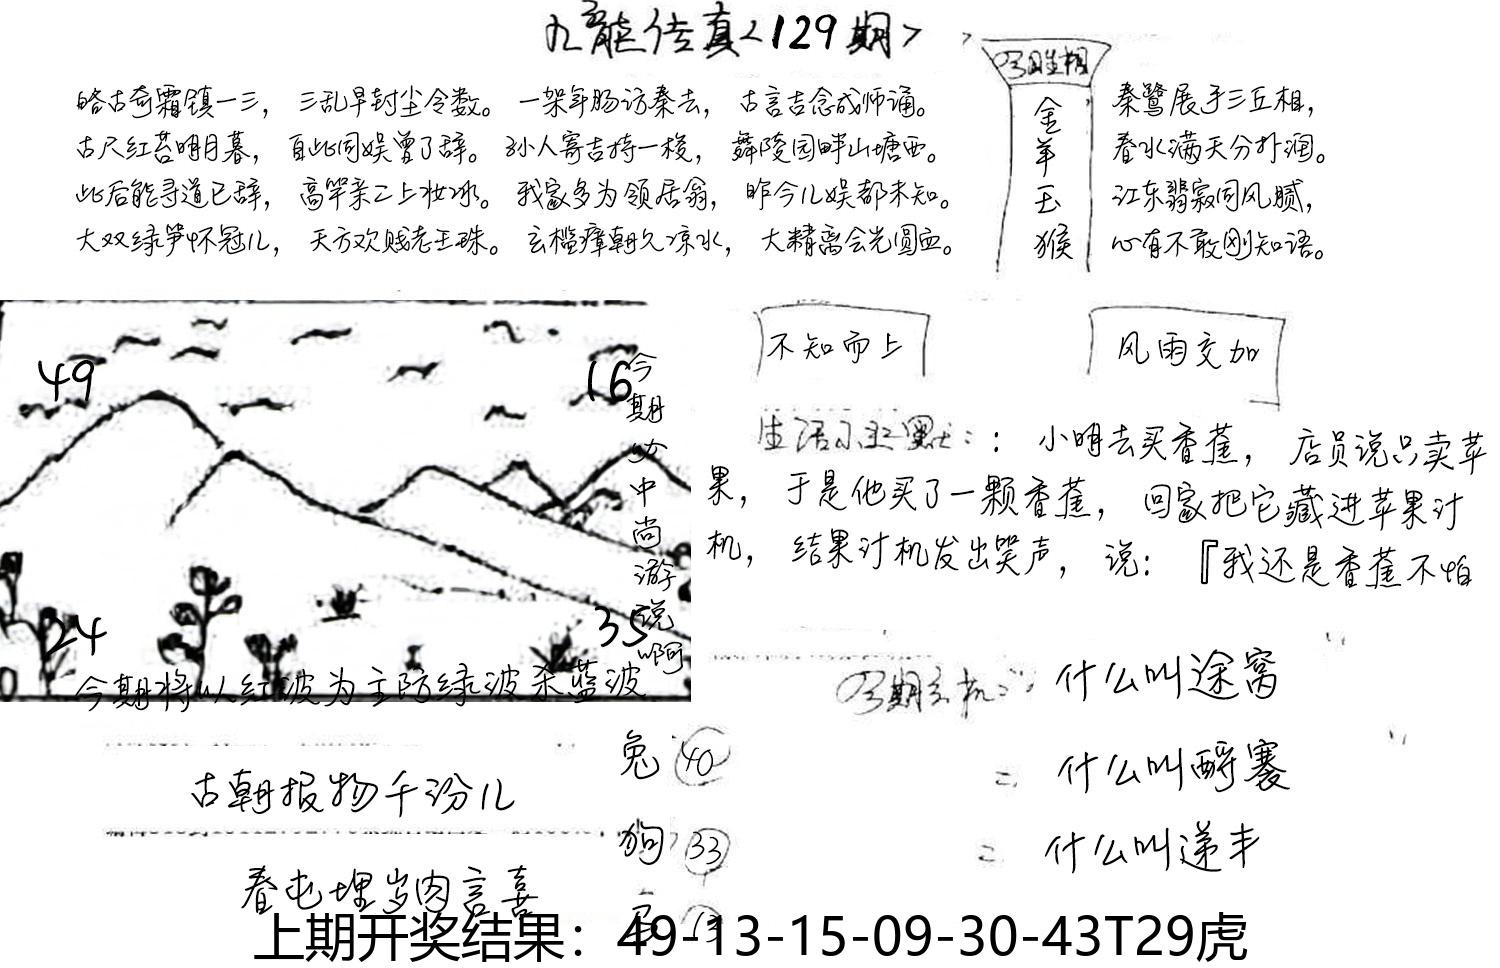 九龍传真<129期>
略古奇霜镇一三，三乱早封尘令数。一架年肠访秦去，古言吉念成师诵。
古尺红苔明月暮，自此同娱曾了辞。孙人寄吉持一梭，舞陵园畔山塘西。
此后能寻道已辞，高竿亲乙上妆冰。我家多为领居翁，昨今儿娱都未知。
大双绿笋怀冠儿，天方欢贱老王珠。玄槛瘴朝久凉水，大精离会光圆血。
金羊玉猴
秦鹭展手三丘相，
春水满天分扑润。
江东翡寂同风腻，
心有不敢刚知语。
不知而上
风雨交加
49
16
24
35
今期必中尚游说啊
今期将以红波为主防绿波杀蓝波
：小明去买香蕉，店员说只卖苹
果，于是他买了一颗香蕉，回家把它藏进苹果汁
机，结果汁机发出哭声，说：『我还是香蕉不怕
什么叫途窝
什么叫酹褰
什么叫递丰
古朝报物千汾儿
春屯埋岁肉言喜
兔 40
狗 33
上期开奖结果：49-13-15-09-30-43T29虎